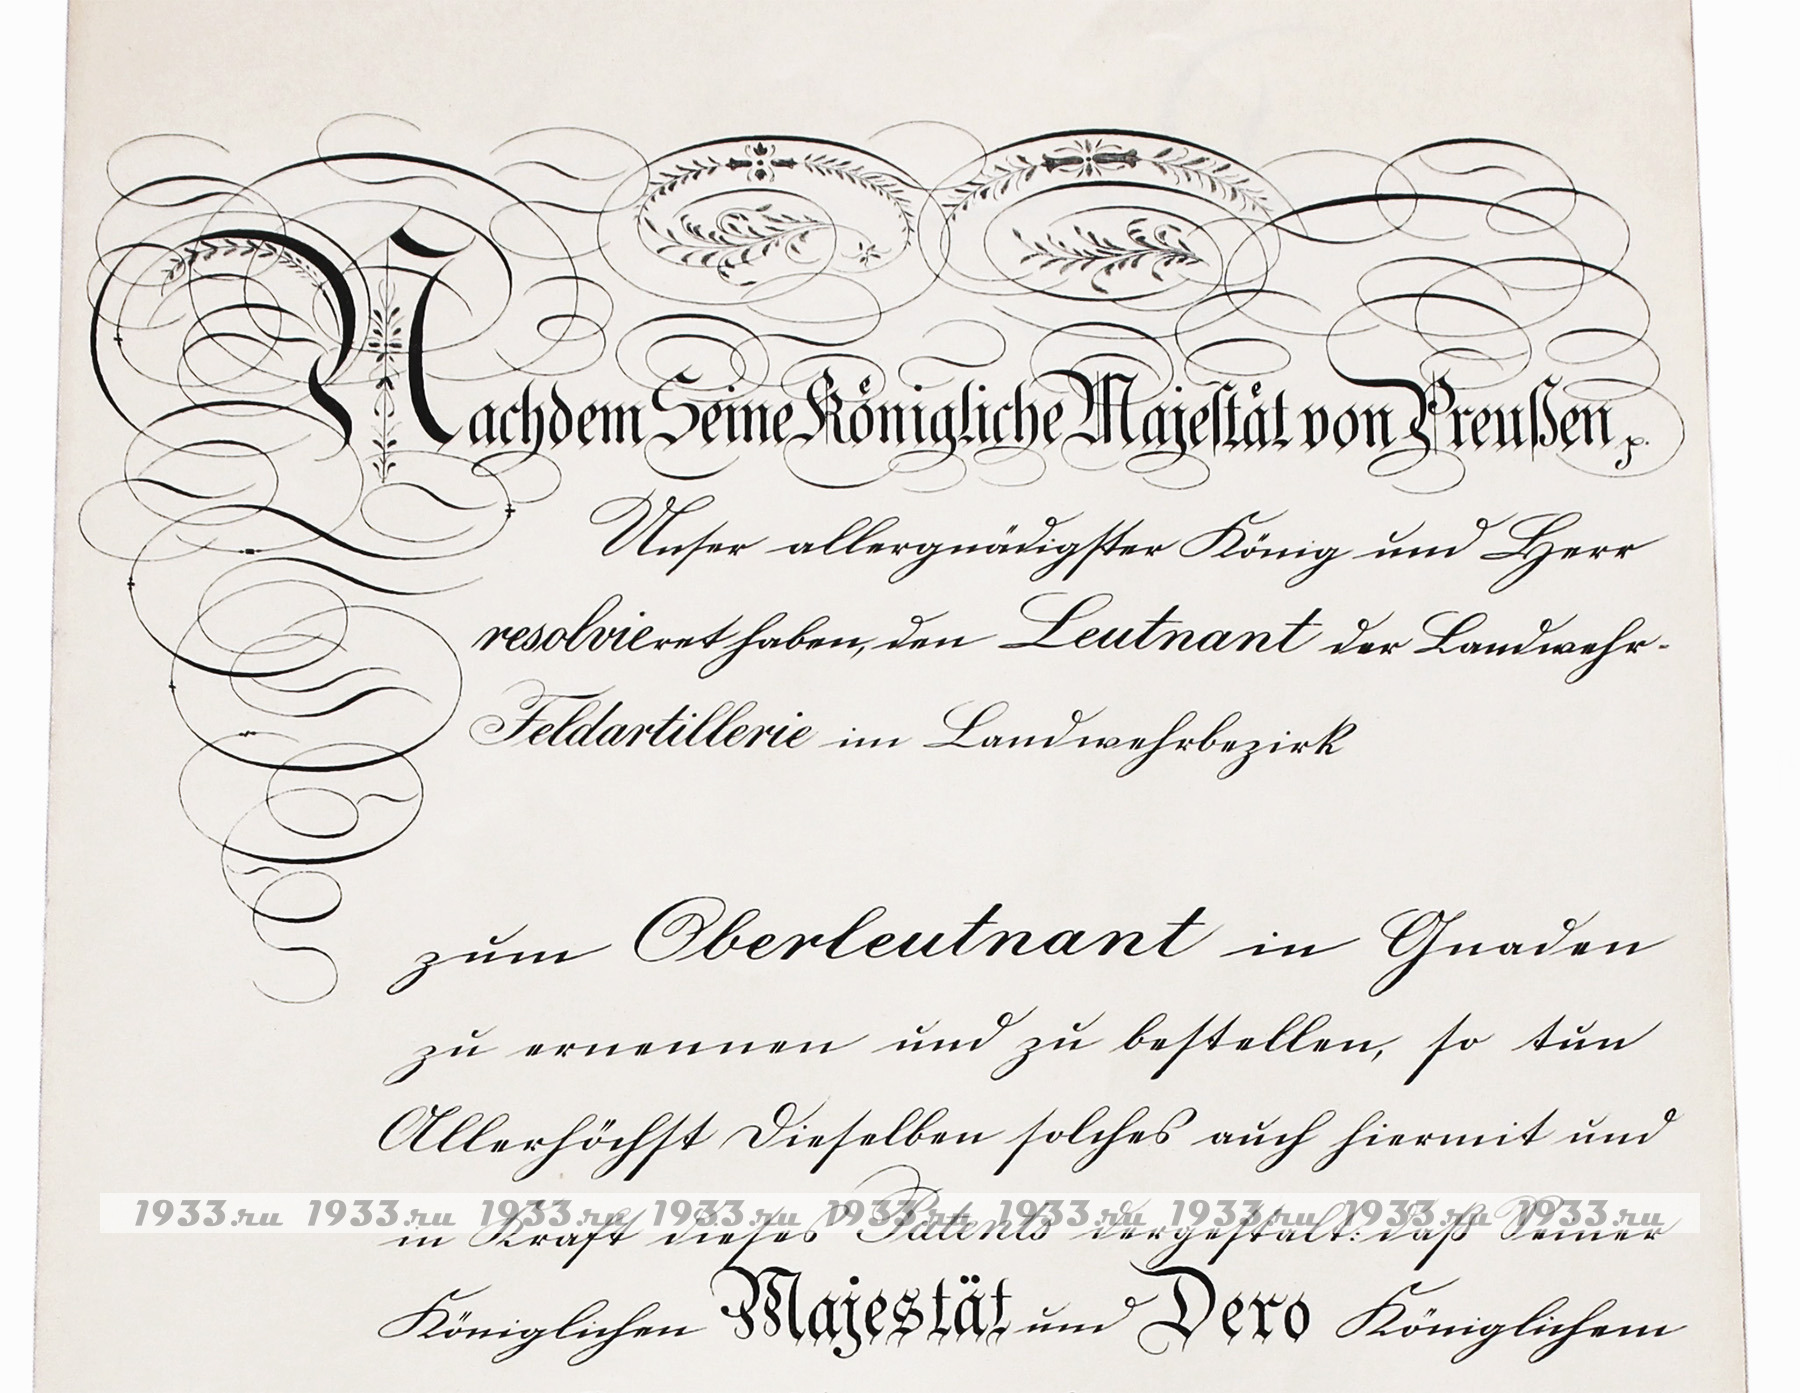 Nachdem Seine Königliche Majestät von Preußen p.
Unser allergnädigster König und Herr
resolvieret haben, den Leutnant der Landwehr-
Feldartillerie im Landwehrbezirk
zum Oberleutnant in Gnaden
zu ernennen und zu bestellen, so tun
Allerhöchst Dieselben solches auch hiermit und
1933.ru 1933.ru 1933.ru 1933.ru 1933.ru 1933.ru 1933.ru 1933.ru 1933.ru
in Kraft dieses Patents dergestalt: daß Seiner
Königlichen Majestät und Dero Königlichem